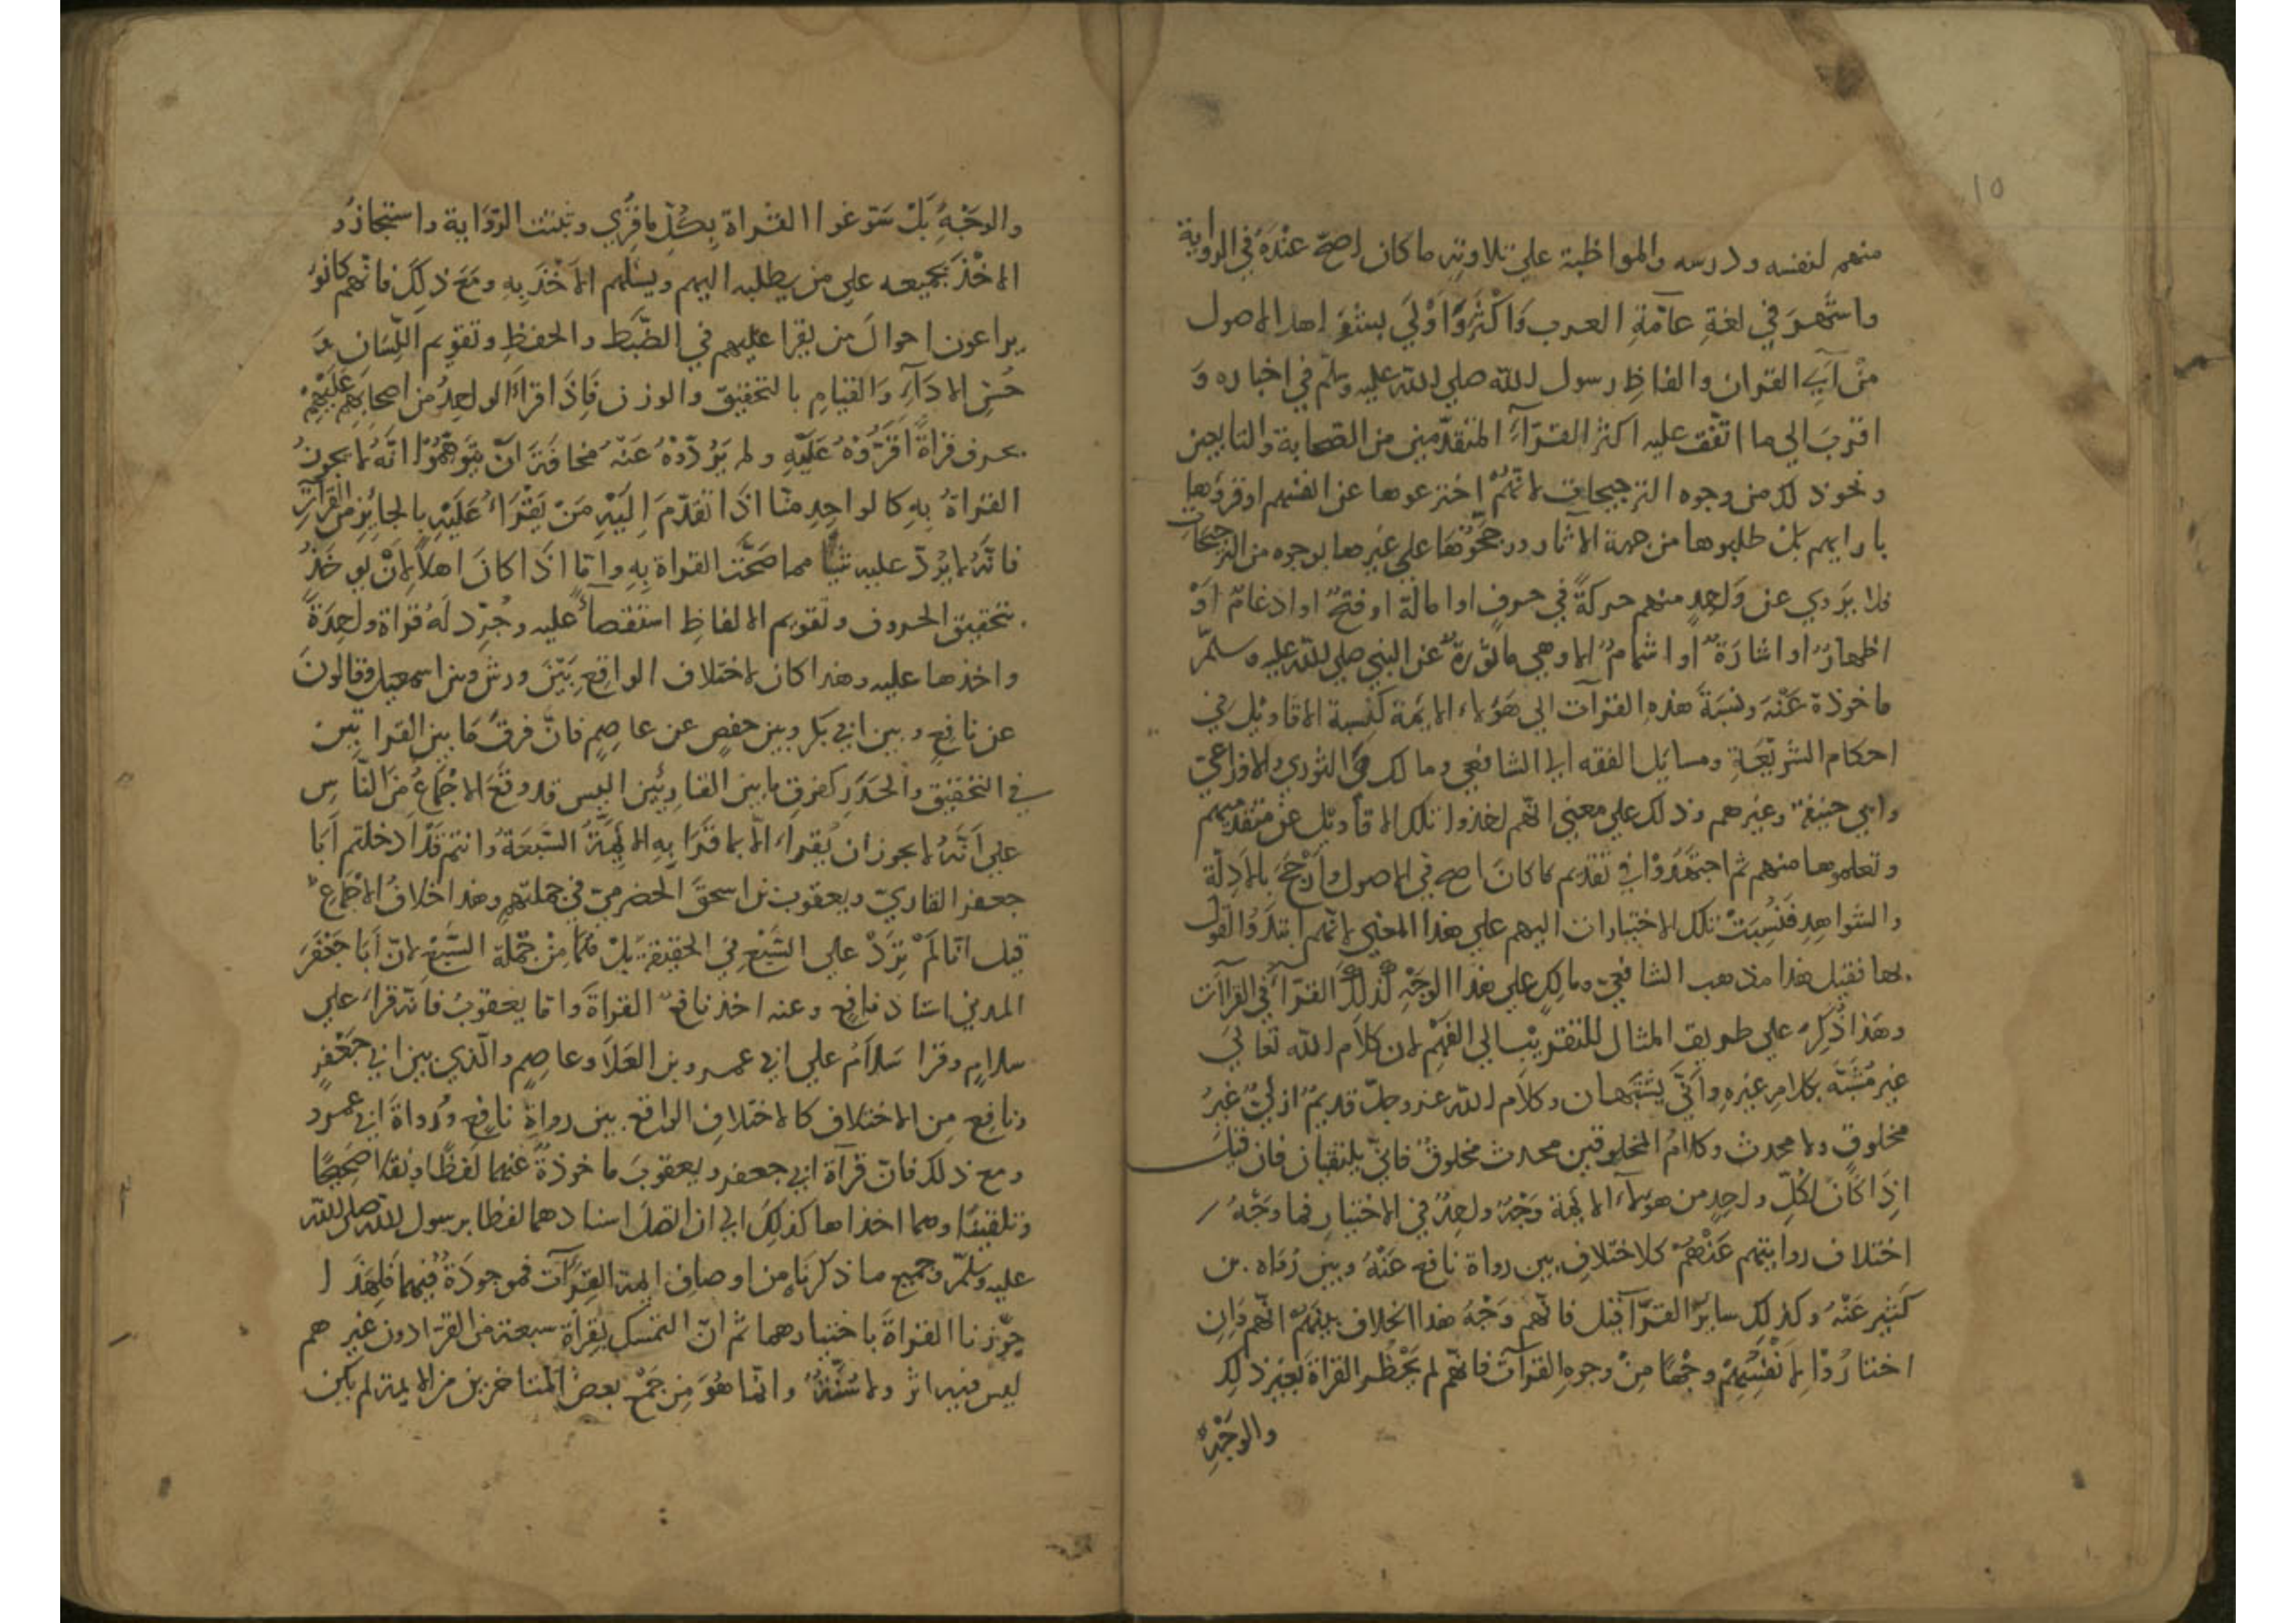 ١٥
منهم لنفسه ودرسه والمواظبة علي تلاوته ما كان اصح عنْدَهُ في الرواية
واشهر في لغةِ عامّةِ العرب وَاكْثَرَ وَاَوْلَي بسنو اهل الاصول
منْ آيِ القران والفاظِ رسول الله صلي الله عليه وسلّم في اخباره وَ
اقربَ الي ما اتّفق عليه اكثر القرّآءِ المتقدّمين من الصحابة والتابعين
ونحو ذلك من وجوه الترجيحات لا انّهُمْ اخترعوها عن انفسهم او قرؤها
بارايهم بل طلبوها من جهة الاثار ورجّحُوْهَا علي غيرها بوجوه من الترجيحات
فلا يَروي عن وَاحِدٍ منهم حركةً في حرفٍ او امالة او فتحٌ او ادغامٌ اَوْ
اظهارٌ او اشارَةٌ او اشمامٌ الا وهي ماثورةٌ عن النبي صلي الله عليه وسلّم
ماخوذة عَنْهُ ونسبَةُ هذه القرآت الي هَؤلاء الايمة كنسبة الاقاويل في
احكام الشريعَةِ ومسايل الفقه الي الشافعي ومالك والثوري والاوزاعي
وابي حنيفة وغيرهم وذلك علي معني انّهم اخذوا تلك الاقاويل عن متقدّميهم
وتعلموها منهم ثم اجتهَدُوْا في تقديم ما كان اصح في الاصول وارْجَحَ بالادِلّة
والشواهِدِ فَنُسِبَتْ تلك الاختيارات اليهم علي هذا المعني لا انّهم ابتدَؤُا القول
بها فقيل هذا مذهب الشافعي ومالكٍ علي هذا الوَجْهِ كذلِكَ القرّآءُ في القراآت
وهَذا ذُكِرَ علي طريق المثال للتقريْب الي الفَهْمِ لان كلامَ الله تعالَي
غير مُشَبّه بكلامِ غيرِهِ وانّي يشْتَبِهان وكلام الله عزّ وجلّ قديمٌ ازليّ غيْرُ
مخلوقٍ ولا محدث وكلامُ المخلوقين محدث مخلوقٌ فانّي يلتقيان فان قيلَ
اذَا كَانَ لكُلّ واحِدٍ من هؤلاءِ الايمة وَجْهٌ واحِدٌ في الاختيارِ فما وَجْهُ
اختلاف روايتهم عَنْهُمْ كالاختلافِ بين رواة نافع عَنْهُ وبين رُوَاه ابن
كَثيرِ عَنْهُ وكذلك سايرُ القرّآء قيل فانّهم وَجْهُ هذا الخلاف بينهم انّهم وَاِن
اختارُوْا لاَنْفُسِهِمْ وجْهًا مِنْ وجوهِ القرآت فانّهم لم يَحْظُرُوا القراة بغيْر ذلِك
والوَجْهِ
والوَجْهِ بَلْ سَوّغوا القراة بِكُلّ ما قُرِي وثبتت الرّوَاية واستجازُو
الاخْذَ بجميعه علي من يطلبه اليهم ويسَلّمهم الاَخْذَ بِهِ ومَعَ ذلِكَ فانّهم كانوُ
يراعون احوالَ من يَقرا عليهم في الضّبْط والحفظِ وتقويم اللّسَان وَ
حُسْنِ الادَآءِ وَالقيامِ بالتحقيق والوزن فَاِذَا قرأَ الواحِدُ من اصحابِهِم عَلَيْهِمْ
بحرف قرأةً اَقَرُّوْهُ عَلَيْهِ ولم يَرُدّوْهُ عَنْهُ مخافَةَ اَنْ يتَوَهّمُوْا انّهُ لا يجوزُ
القراةُ بِهِ كالواحِدِ منّا اذَا تقدّمَ اِلَيْهِ مَنْ يَقْرَاُ عَلَيْهِ بالجايزِ من القرآتِ
فانّهُ لا يَرُدّ عليه شيأً مما صَحّت القراة بِهِ وامّا اذَا كانَ اهلاً لاَنْ يوخَذُ
بتحقيق الحروف وتقويم الالفاظِ استقصأَ عليه وجُرّد لَهُ قراة واحِدَةً
واخذها عليه وهذا كان لاختلاف الواقِعِ بَيْنَ ورش وبين اسمعيل وقالونَ
عن نافِعٍ وبين ابي بكر وبين حفصٍ عن عاصِمٍ فانّ فرقَ مَا بين القرا يَين
في التحقيق والحَدَرِ كفرق ما بين القارِيَين اليس قد وقَعَ الاجْمَاعُ منَ النّاسِ
علي اَنّهُ لا يجوز ان يُقرأ الّا بما قَرَا بِهِ الايِمّةُ السّبَعَةُ وانتم قَدْ ادخلتم اَبَا
جعفر القاريّ ويعقوب بن اسحقَ الحضرميّ في جملتهم وهذا خلافُ الاجْمَاع
قيل انّا لَمْ نزِدْ علي السَّبْعِ في الحقيقة بَلْ هُمَا مِنْ جُمْلةِ السَّبْعِ لانّ اَبَا جَعْفَرَ
المدني استاذ نافِعٍ وعنه اخذ نافعٌ القراةَ وامّا يعقوبُ فانّه قرأ علي
سلامٍ وقرا سَلاَمُ علي ابي عمرو بن العَلاَ وعاصِمٍ والّذي بين ابي جَعْفَرٍ
ونافِعٍ مِن الاختلاف كالاختلافِ الواقع بين رواةِ نافِعٍ ورُواةِ ابي عمرو
ومع ذلك فانّ قرآة ابي جعفر ويعقوبَ ماخوذةٌ عنهما لفظًا ونقلًا صَحيْحًا
وتلقينًا وهما اخذاها كذلِكَ الي ان اتّصلَ اسنادهما لفظا برسول الله صلي الله
عليه وسَلّم وجميع ما ذكرنَاه من اوصافِ ايمة القِرآت فموجودَةٌ فيهما فَلِهَذَا
جوّزنا القراةَ باختيارهما ثم انّ التمسك بقِرأة سبعة من القرّا دون غيرهم
ليس فيه اثرٌ ولا سُنّةٌ وانّما هُوَ مِن جَمْعِ بعض المتاخرين من الايمة لم يكن